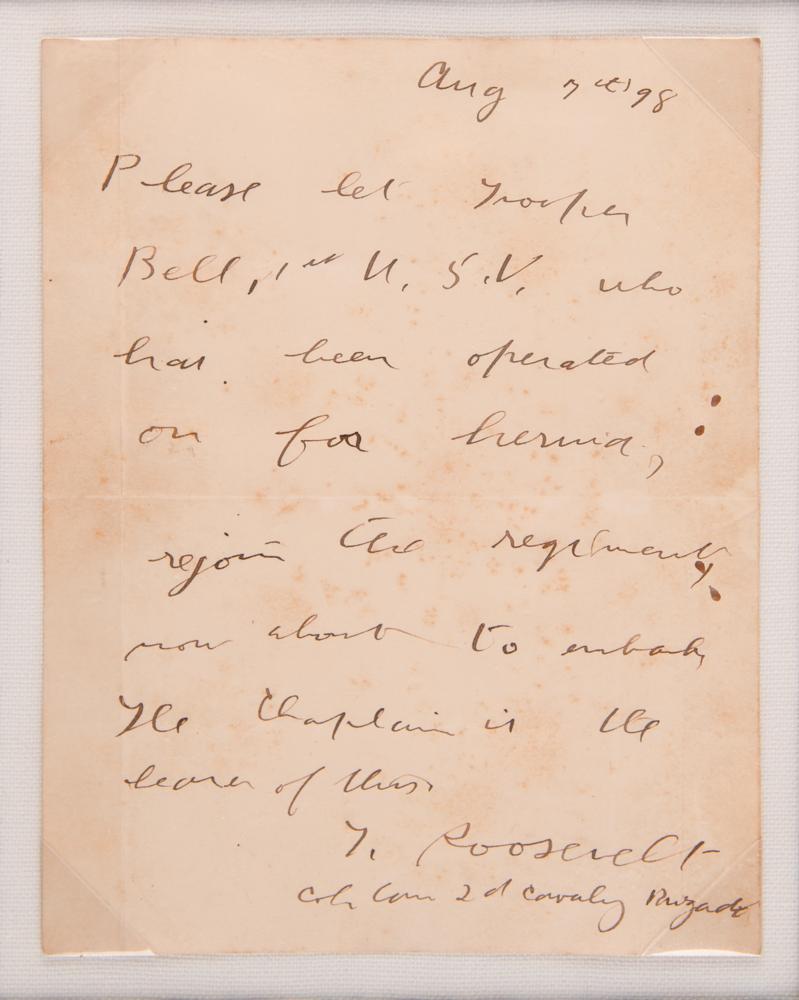 Aug 7th '98
Please let Trooper
Bell, 1st U. S. V. who
has been operated
on for hernia,
rejoin the regiment,
now about to embark,
The Chaplain is the
bearer of this.
T. Roosevelt
Col. Com 2d Cavalry Brigade